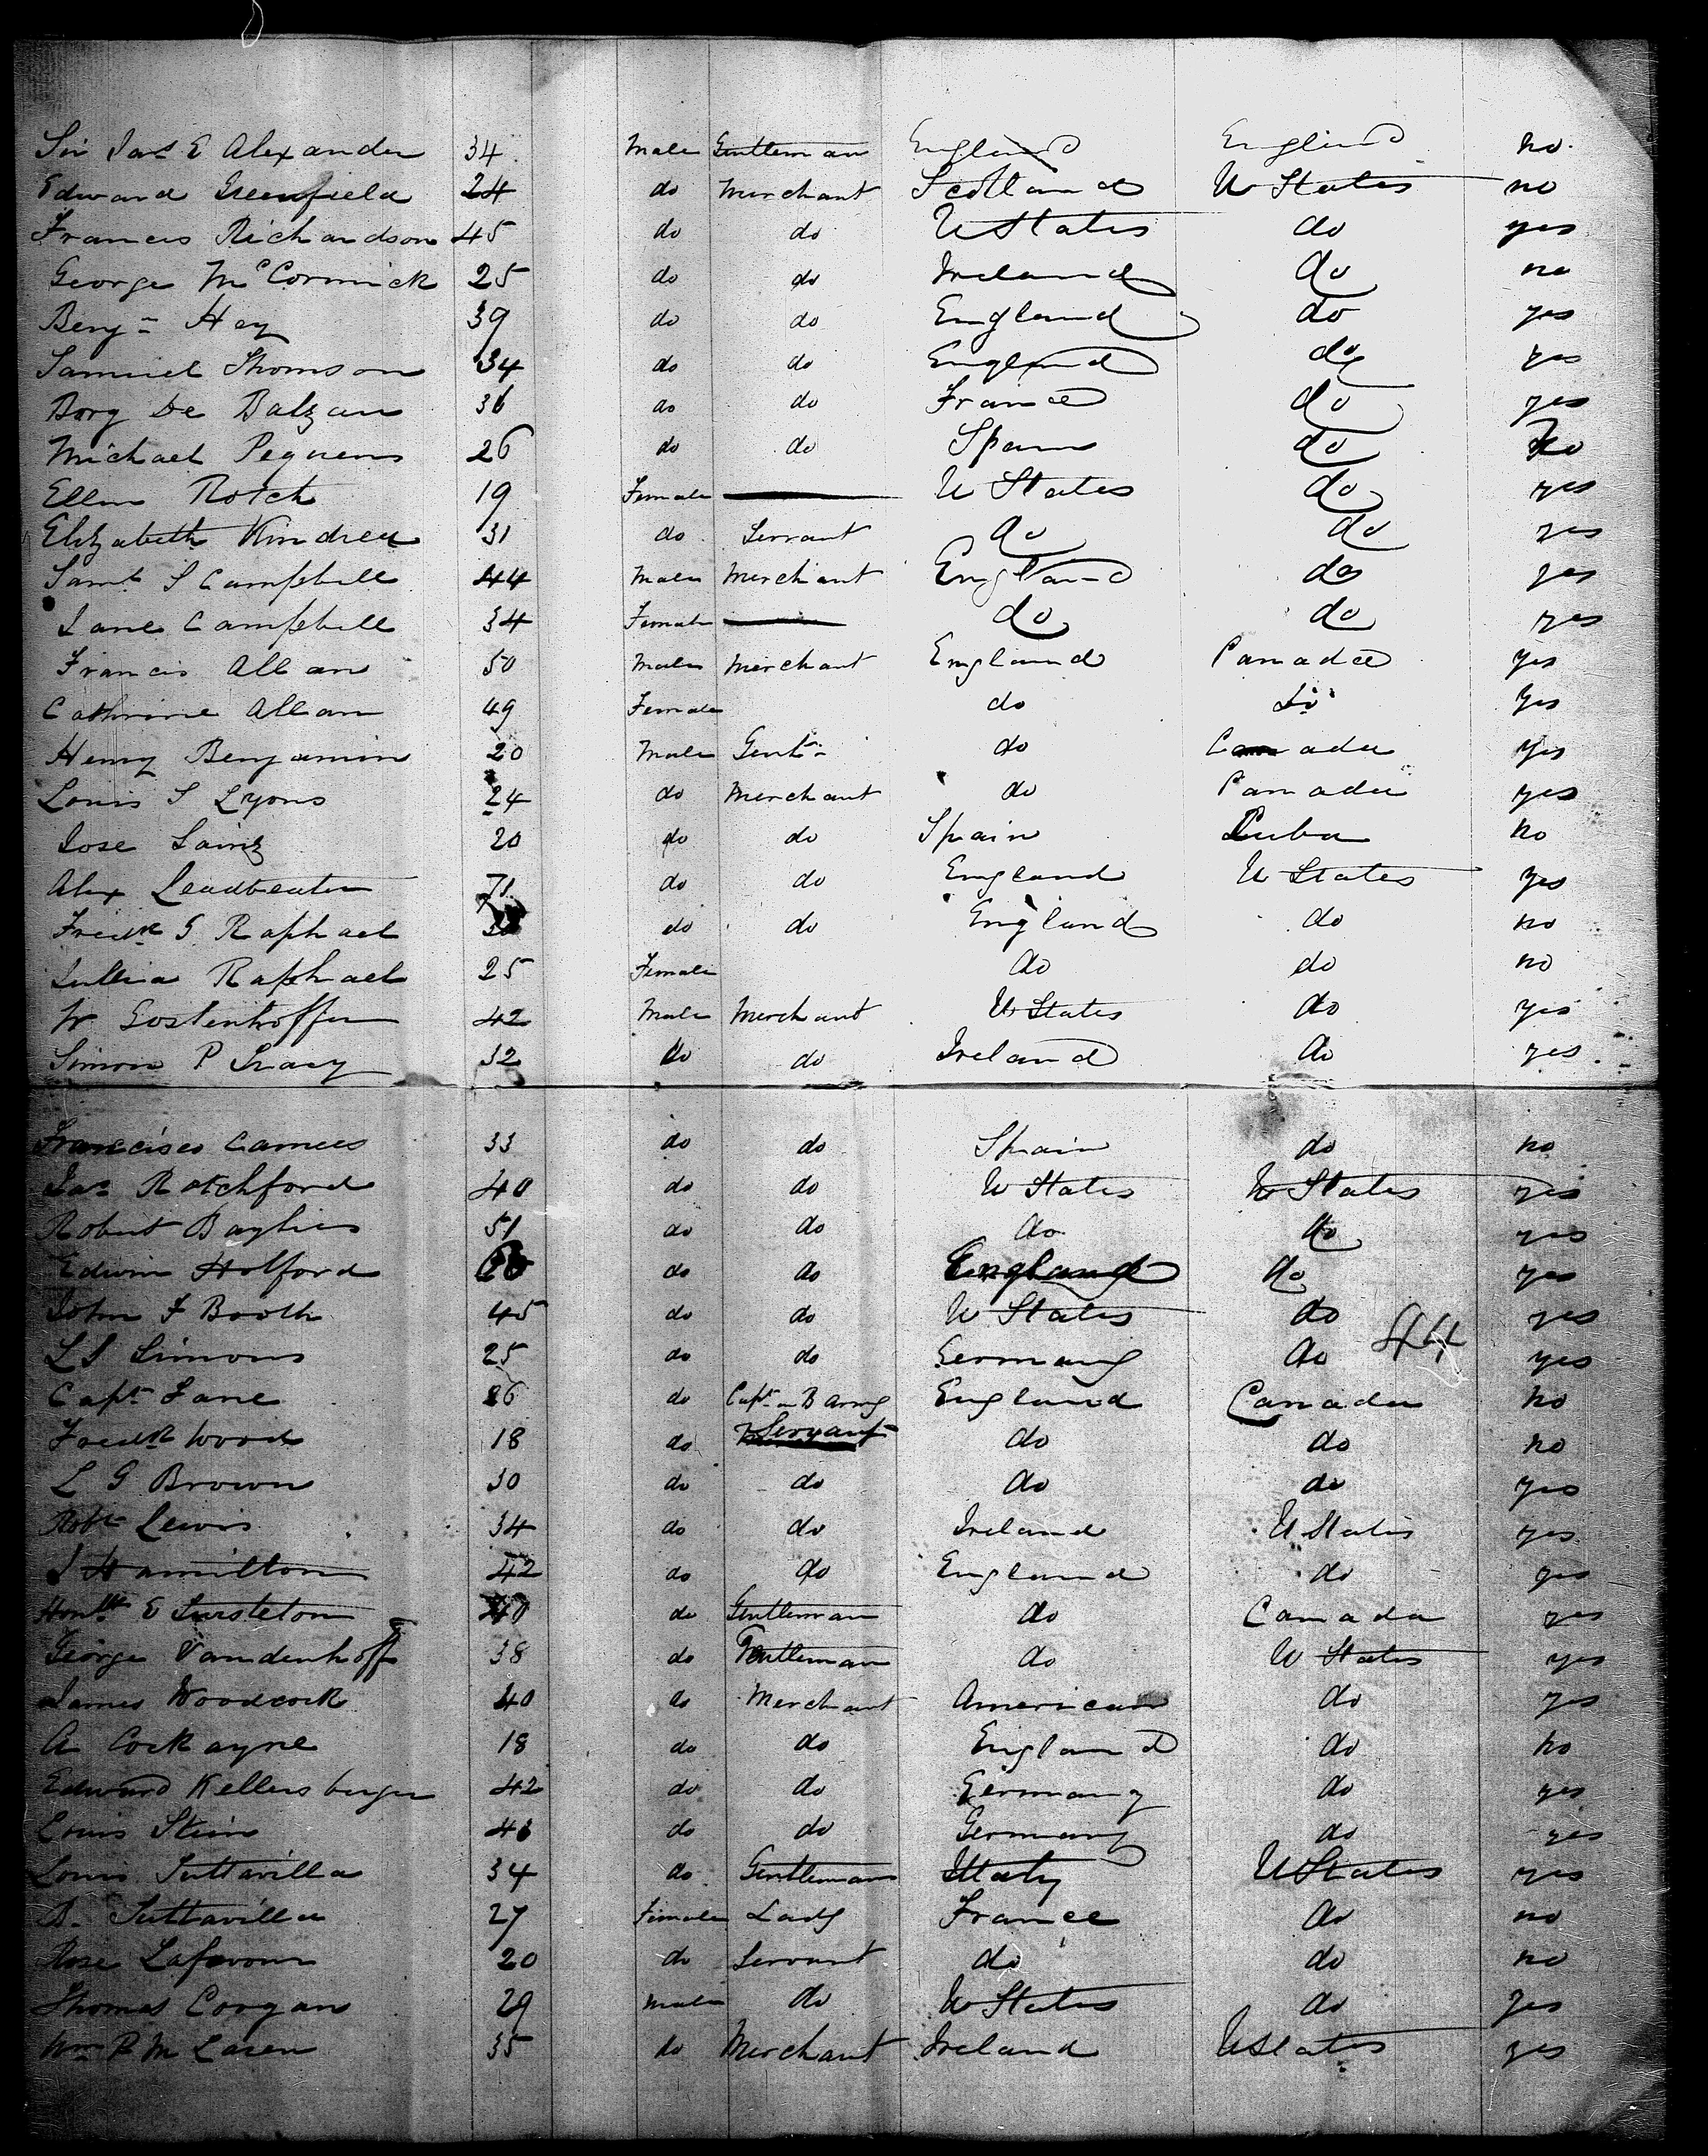 Sir Jas E Alexander 34 Male Gentleman England England no
Edward Greenfield 24 do Merchant Scotland U States no
Francis Richardson 45 do do U States do yes
George McCormick 25 do do Ireland do no
Benjn Hay 39 do do England do yes
Samuel Thomson 34 do do England do yes
Borg De Balzan 36 do do France do yes
Michael 26 do do Spain do No
Ellen Rotch 19 Female U States do yes
Elizabeth Kindred 31 do Servant do do yes
Saml S Campbell 44 Male Merchant England do yes
Jane Campbell 34 Female do do yes
Francis Allan 50 Male Merchant England Canada yes
Cathrine Allan 49 Female do do yes
Henry Benjamin 20 Male Gent do Canada yes
Louis S Lyons 24 do Merchant do Canada yes
Jose Sainz 20 do do Spain Cuba no
Alex Leadbeater 71 do do England U States yes
Fredk G Raphael do do England do no
Jullia Raphael 25 Female do do no
W Gostenhoffer 42 Male Merchant U States do yes
Simon P Tracy 32 do do Ireland do yes
Francisco 33 do do Spain do no
Jas Rotchford 40 do do U States U States yes
Robert Baylies 51 do do do do yes
Edwin Holford do do England do yes
John F Booth 45 do do U States do yes
L J Simons 25 do do Germany do 44 yes
Capt Lane 26 do Capt in B Army England Canada no
Fredk Wood 18 do Servant do do no
L G Brown 30 do do do do yes
Robt Lewis 34 do do Ireland U States yes
J Hamilton 42 do do England do yes
Honble E 40 do Gentleman do Canada yes
George Vandenhoff 38 do Gentleman do U States yes
James Woodcock 40 do Merchant American do yes
A Cockayne 18 do do England do no
Edward Kellersberger 42 do do Germany do yes
Louis Stein do do Germany do yes
Louis Tuttavilla 34 do Gentleman Italy U States yes
B. Tuttavilla 27 Female Lady France do no
Rose 20 do Servant do do no
Thomas Coogan 29 Male do U States do yes
Wm P M Laren 35 do Merchant Ireland U States yes